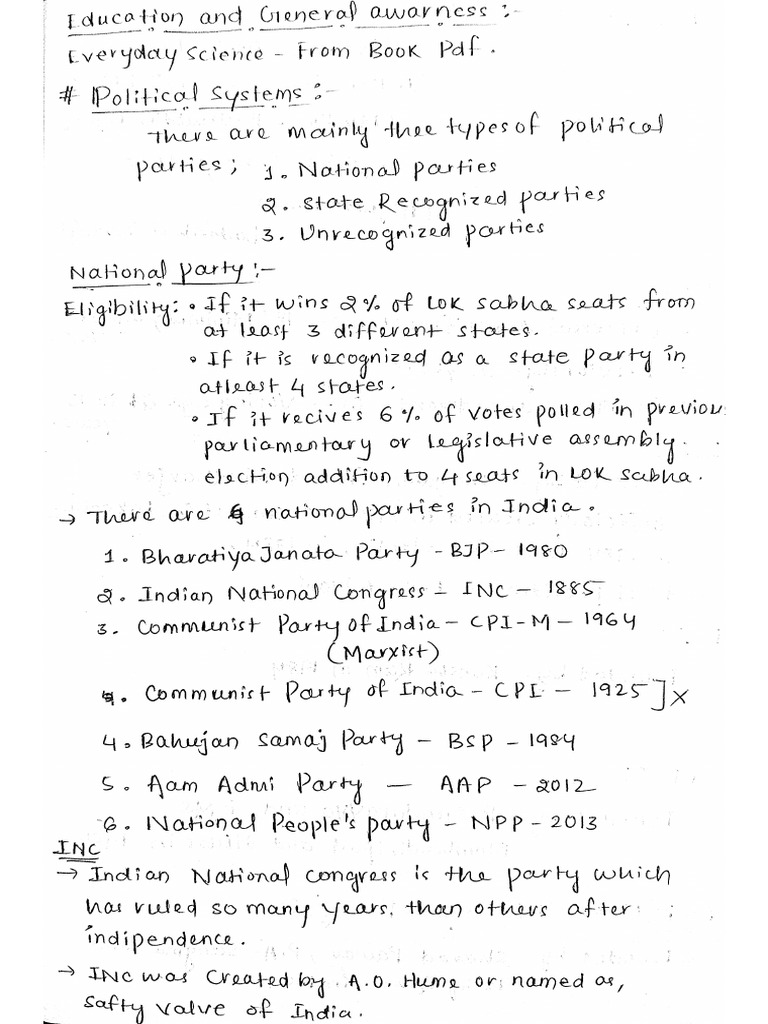 Education and General awarness :-
Everyday Science - From Book Pdf.
# Political Systems :-
There are mainly thee types of political
parties; 1. National parties
2. State Recognized parties
3. Unrecognized parties
National party :-
Eligibility: • If it wins 2% of Lok sabha seats from
at least 3 different states.
• If it is recognized as a state party in
atleast 4 states.
• If it recives 6% of votes polled in previou
parliamentary or legislative assembly.
election addition to 4 seats in Lok sabha.
→ There are national parties in India.
1. Bharatiya Janata Party - BJP - 1980
2. Indian National Congress - INC - 1885
3. Communist Party of India - CPI-M - 1964
(Marxist)
Communist Party of India - CPI - 1925 ] x
4. Bahujan Samaj Party - BSP - 1984
5. Aam Admi Party - AAP - 2012
6. National People's party - NPP - 2013
INC
→ Indian National congress is the party which
has ruled so many years. than others after
indipendence.
→ INC was created by A.O. Hume or named as,
Safty valve of India.